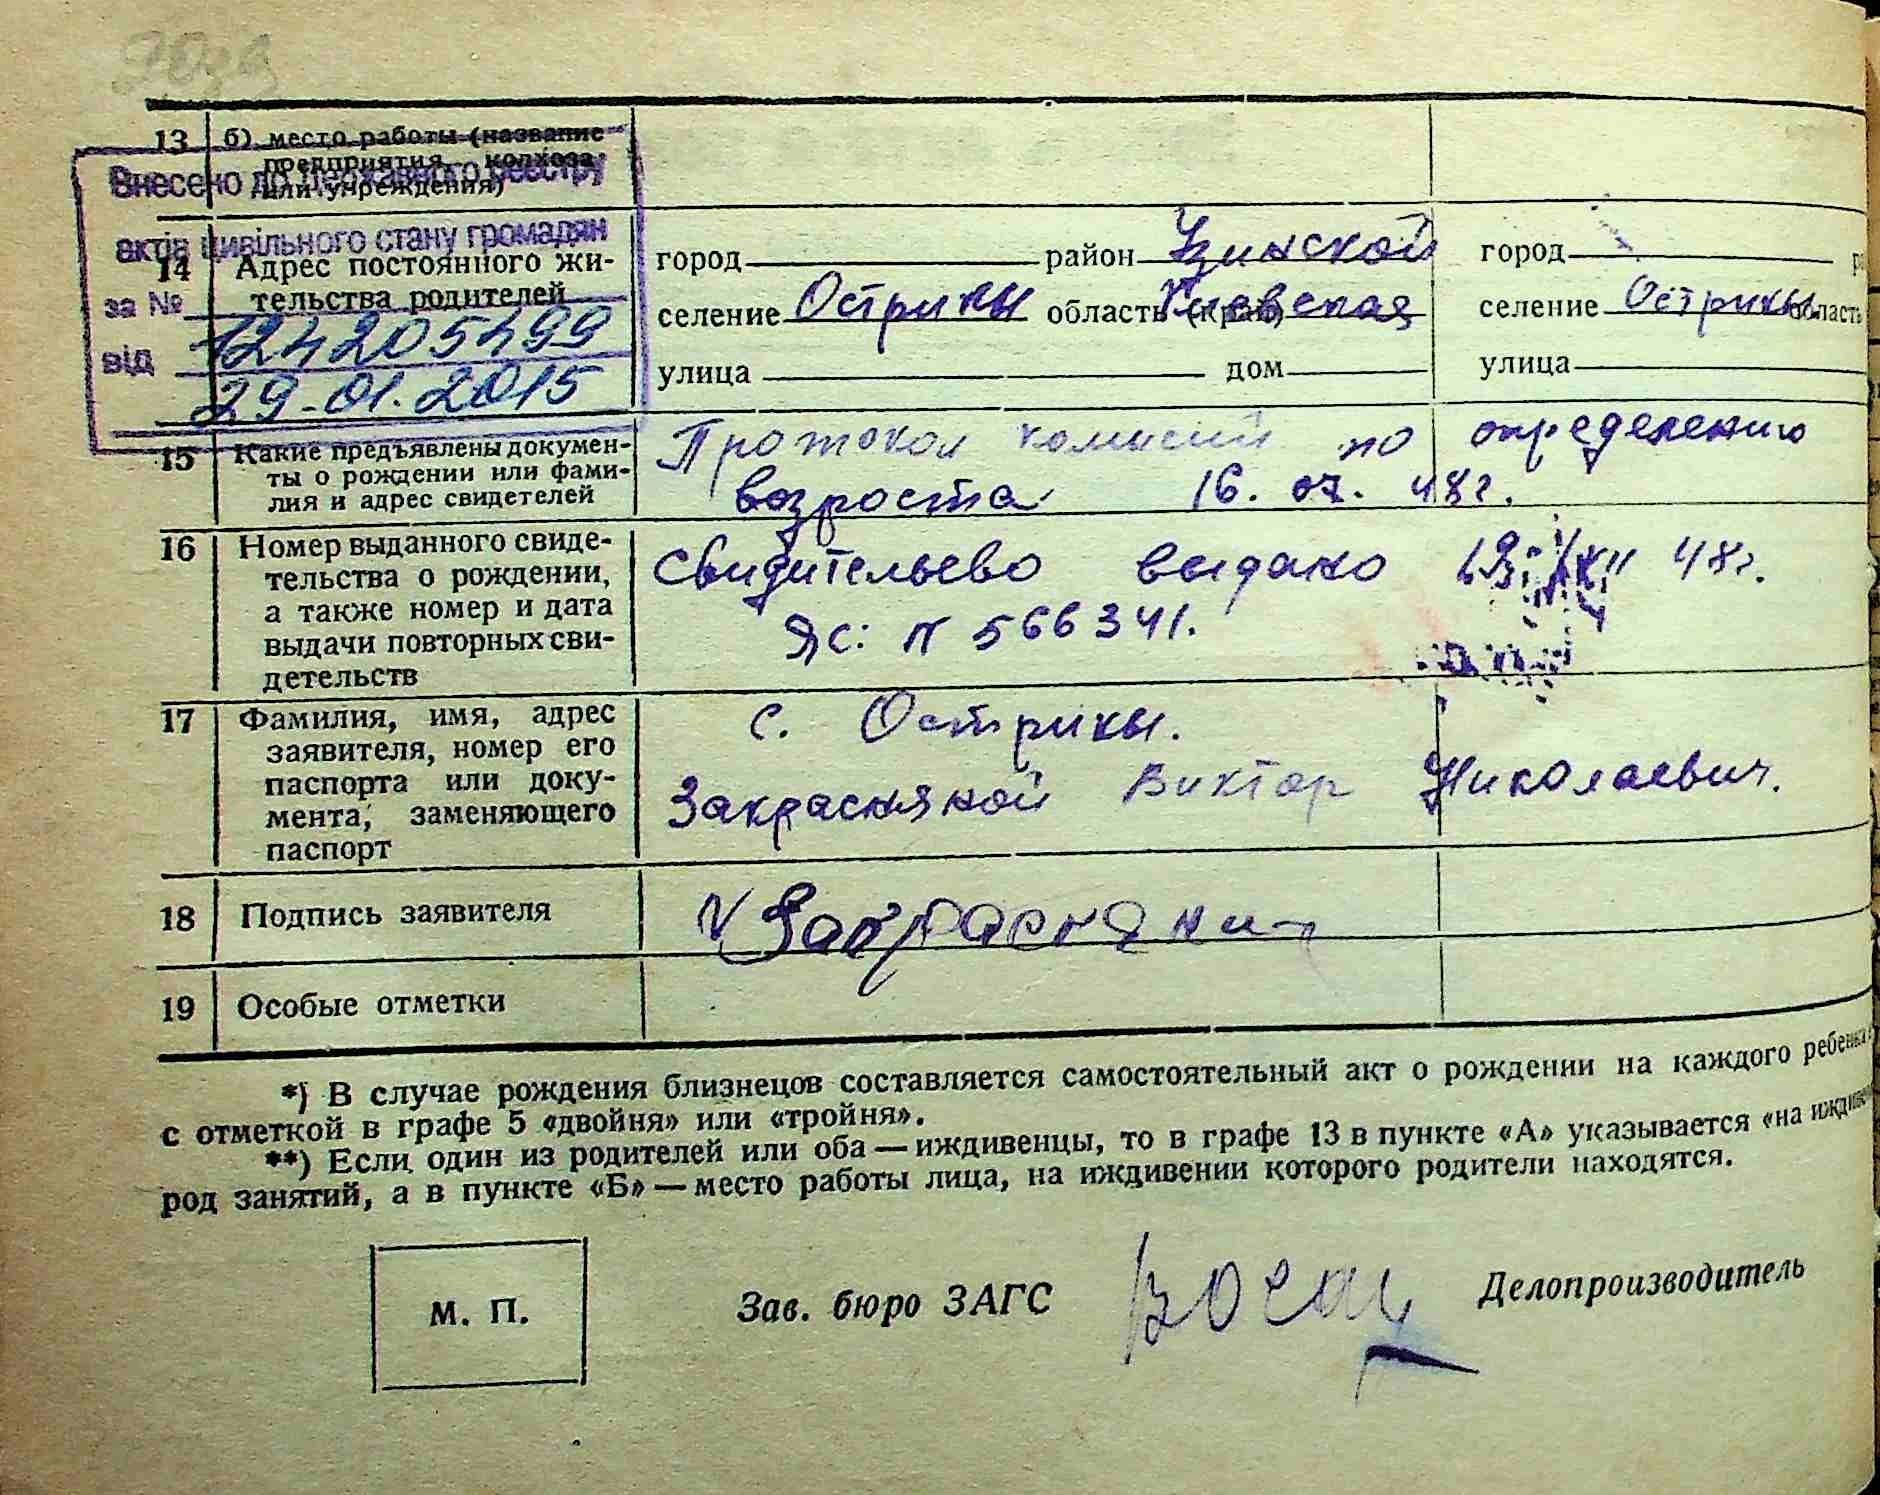 13 б) место работы (название
предприятия, колхоза
или учреждения)
Внесено до Державного реєстру
актів цивільного стану громадян
за № 124205499
від 29.01.2015
14 Адрес постоянного жи-
тельства родителей
город район Узинской город
селение Острики область (край) Киевская селение Острикы область
улица дом улица
15 Какие предъявлены докумен-
ты о рождении или фами-
лия и адрес свидетелей
Протокол комисии по определению
возроста 16. 07. 48г.
16 Номер выданного свиде-
тельства о рождении,
а также номер и дата
выдачи повторных сви-
детельств
Свидительево выдано 48г.
ЯС: N 566341.
17 Фамилия, имя, адрес
заявителя, номер его
паспорта или доку-
мента, заменяющего
паспорт
с. Острикы.
Закрасняной Виктор Николаевич.
18 Подпись заявителя
19 Особые отметки
*) В случае рождения близнецов составляется самостоятельный акт о рождении на каждого ребенка
с отметкой в графе 5 «двойня» или «тройня».
**) Если один из родителей или оба — иждивенцы, то в графе 13 в пункте «А» указывается «на
род занятий, а в пункте «Б» — место работы лица, на иждивении которого родители находятся.
М. П.
Зав. бюро ЗАГС Делопроизводитель